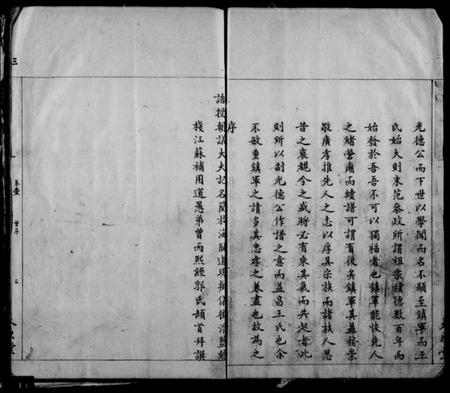 光德公而下世以學聞而名不顯至鎮軍而王
氏始大則宋范參政所謂祖宗積德數百年而
始發於吾吾不可以獨福者也鎮軍能恢先人
之緒營廟而續譜可謂有後矣鎮軍其益務崇
敬廣孝推先人之志以厚其宗族而諸族人思
昔之衰覩今之盛將必有乘其氣而共起者此
則所以副光德公作譜之意而益昌王氏也余
不敏重鎮軍之請多其忠孝之兼盡也故為之
序
誥授朝議大夫記名簡放海關道現辦儀徵淮鹽總
棧江蘇補用道愚弟曾丙熙經郛氏頓首拜譔
三
卷壹